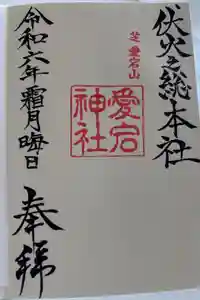 伏火之総本社
芝 愛宕山
愛宕神社
奉拝
令和六年霜月晦日